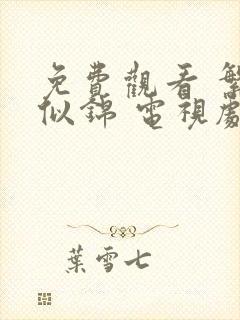 免費觀看 繁
似錦 電視處
葉雪七